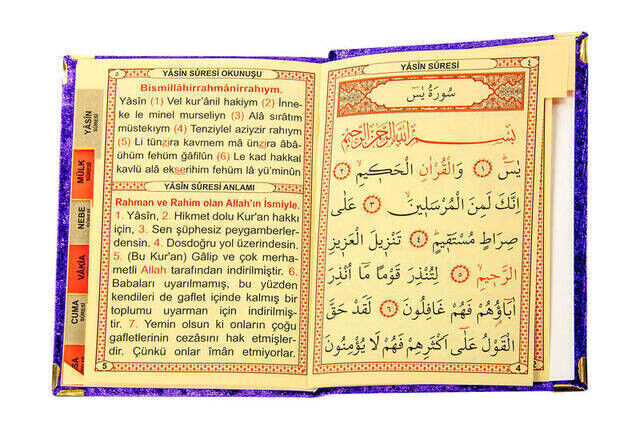 YÂSİN SÛRESİ
٤
سُورَةُ يٰسٓ
بِسْمِ اللّٰهِ الرَّحْمٰنِ الرَّحِيمِ
يٰسٓ ﴿١﴾ وَالْقُرْاٰنِ الْحَكِيمِۙ ﴿٢﴾
اِنَّكَ لَمِنَ الْمُرْسَلِينَۙ ﴿٣﴾ عَلٰى
صِرَاطٍ مُسْتَقِيمٍۜ ﴿٤﴾ تَنْزِيلَ الْعَزِيزِ
الرَّحِيمِۙ ﴿٥﴾ لِتُنْذِرَ قَوْمًا مَٓا اُنْذِرَ
اٰبَٓاؤُ۬هُمْ فَهُمْ غَافِلُونَ ﴿٦﴾ لَقَدْ حَقَّ
الْقَوْلُ عَلٰٓى اَكْثَرِهِمْ فَهُمْ لَا يُؤْمِنُونَ
4
٥
YÂSİN SÛRESİ OKUNUŞU
Bismillâhirrahmânirrahıym.
Yâsîn (1) Vel kur'ânil hakiym (2) İnne-
ke le minel murseliyn (3) Alâ sıratîm
müstekıym (4) Tenziylel aziyzir rahıym
(5) Li tünzira kavmem mâ ünzira âbâ-
ühüm fehüm gâfilûn (6) Le kad hakkal
kavlü alâ ekserihim fehüm lâ yü'minûn
YÂSİN SÛRESİ ANLAMI
Rahman ve Rahim olan Allah'ın İsmiyle.
1. Yâsîn, 2. Hikmet dolu Kur'an hakkı
için, 3. Sen şüphesiz peygamberler-
densin. 4. Dosdoğru yol üzerindesin.
5. (Bu Kur'an) Gâlip ve çok merha-
metli Allah tarafından indirilmiştir. 6.
Babaları uyarılmamış, bu yüzden
kendileri de gaflet içinde kalmış bir
toplumu uyarman için indirilmiş-
tir. 7. Yemin olsun ki onların çoğu
gafletlerinin cezasını hak etmişler-
dir. Çünkü onlar îmân etmiyorlar.
5
YÂSİN
SÛRESİ
MÜLK
SÛRESİ
NEBE
SÛRESİ
VÂKIA
SÛRESİ
CUMA
SÛRESİ